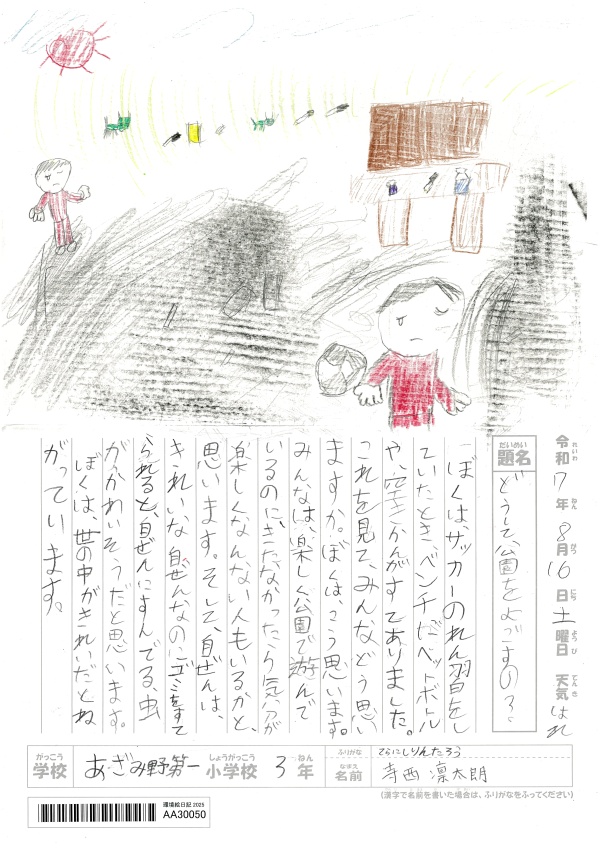 令和7年8月16日土曜日 天気はれ
れいわ ねん がつ にち ようび てんき
だいめい
題名
どうして、公園をよごすの？。
ぼくは、サッカーのれん習をし
ていたとき、ベンチだペットボトル
や、空きかんがすてありました。
これを見て、みんなどう思い
ますか。ぼくは、こう思います。
みんなは、楽しく公園で遊んで
いるのに、きたなかったら気分が
楽しくなんない人もいるかと、
思います。そして、自ぜんは、
きれいな自ぜんなのにゴミをすて
られると、自ぜんにすんでる、虫
がかわいそうだと思います。
ぼくは、世の中がきれいだとね
がっています。
がっこう 学校 あざみ野第一 しょうがっこう 小学校 3 ねん 年
ふりがな てらにしりんたろう
なまえ 名前 寺西 凛太朗
(漢字で名前を書いた場合は、ふりがなをふってください)
環境絵日記 2025
AA30050